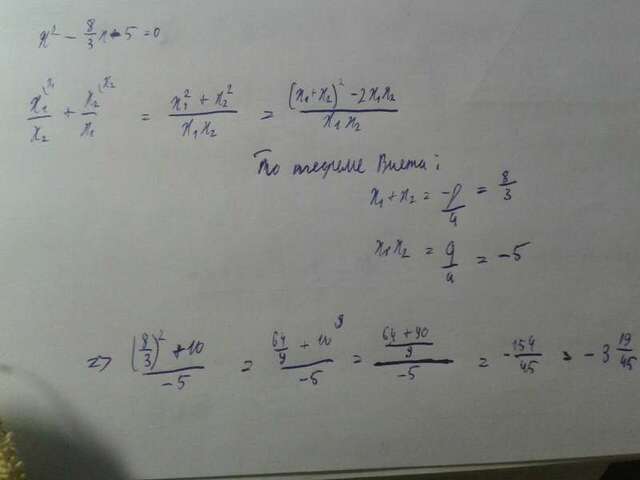 x² - 8/3 x - 5 = 0
x₁^(x₁ / x₂ + x₂^(x₂ / x₁ = (x₁² + x₂²) / (x₁x₂) = ((x₁+x₂)² - 2x₁x₂) / (x₁x₂)
По теореме Виета:
x₁ + x₂ = -p/a = 8/3
x₁x₂ = q/a = -5
=> ((8/3)² + 10) / -5 = (64/9 + 10^9) / -5 = ((64 + 90)/9) / -5 = -154/45 = -3 19/45